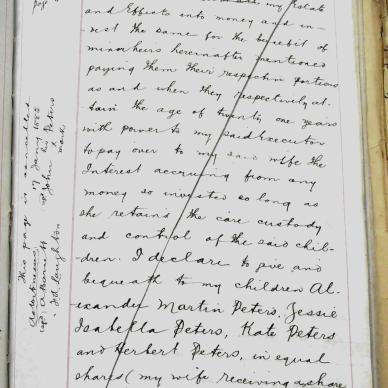 my Estate
and Effects into money and in-
vest the same for the benefit of
minor heirs hereinafter mentioned
paying them their respective portions
as and when they respectively at-
tain the age of twenty one years
with power to my said Executor
to pay over to my said wife the
Interest accruing from any
money so invested so long as
she retains the care custody
and control of the said chil-
dren. I declare to give and
bequeath to my children Al-
exander Martin Peters, Jessie
Isabella Peters, Kate Peters
and Herbert Peters, in equal
shares (my wife receiving a share
page
This page is cancelled
17 Jany 1885
John his Peters
mark
Witnesses